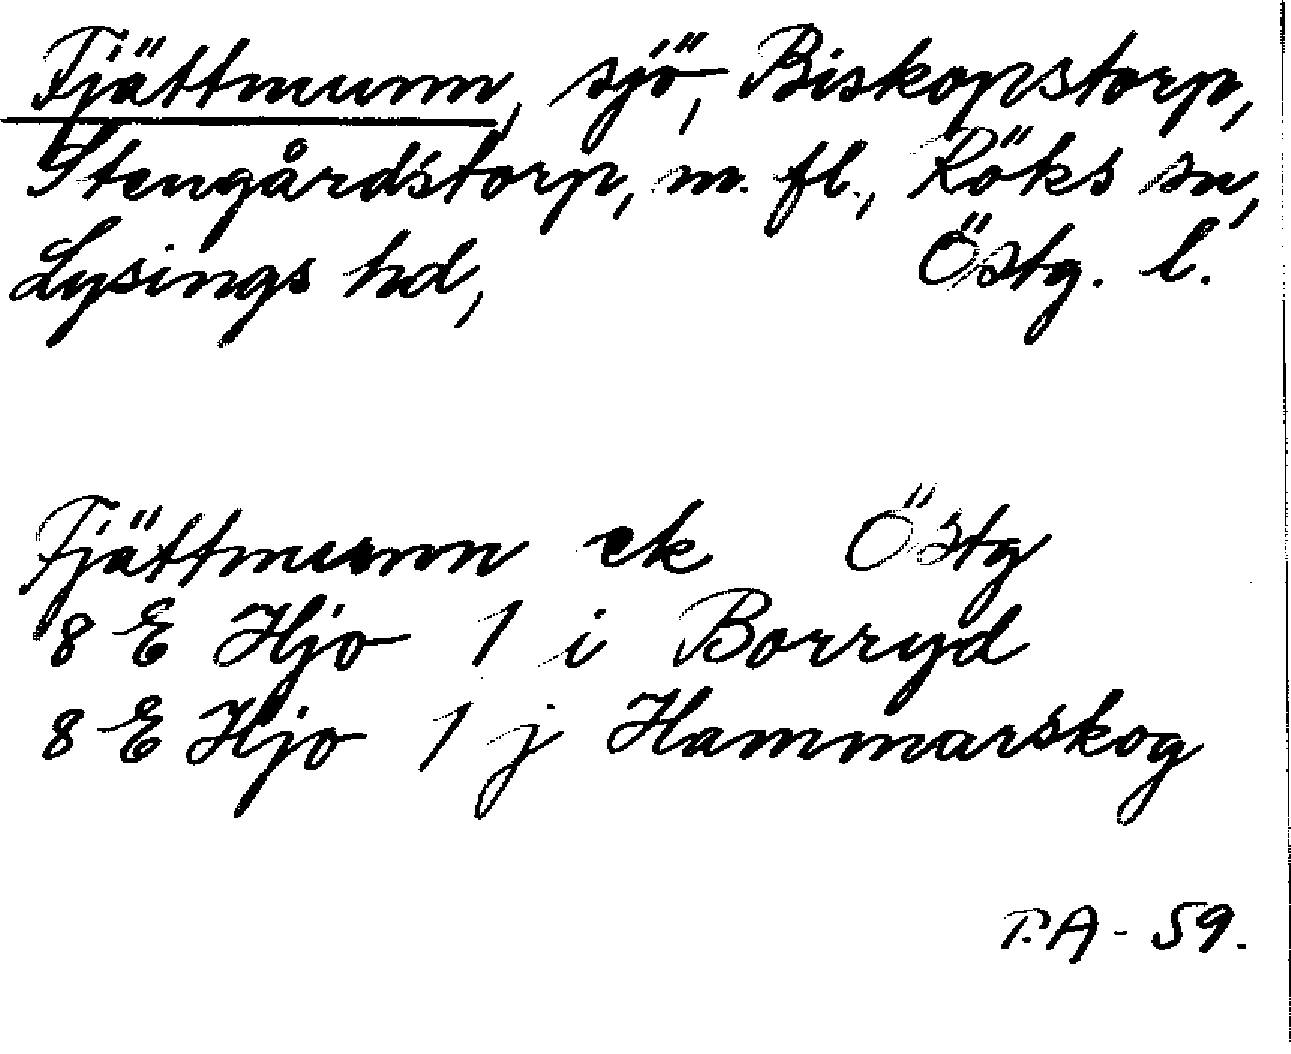 Fjättmunn, sjö, Biskopstorp,
Stengårdstorp, m. fl., Röks sn,
Lysings hd, Östg. l.
Fjättmunn ek Östg
8 E Hjo 1 i Borryd
8 E Hjo 1 j Hammarskog
P.A - 59.